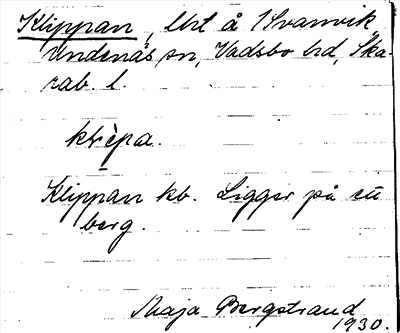 Klippan, lht å 1 Svanvik,
Undenäs sn, Vadsbo hd, Ska-
rab. l.
Klippan kb. Ligger på ett
berg.
Maja Bergstrand
1930.